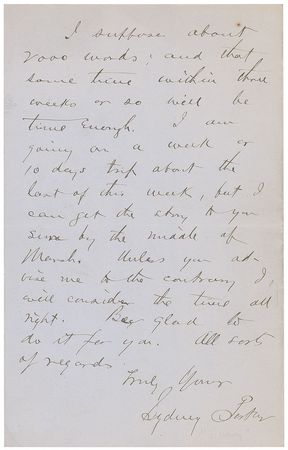 I suppose about
2000 words; and that
some time within three
weeks or so will be
time enough. I am
going on a week or
10 days trip about the
last of this week, but I
can get the story to you
sure by the middle of
March. Unless you ad-
vise me to the contrary I
will consider the time all
right. Be glad to
do it for you. All sorts
of regards
Truly Yours
Sydney Porter